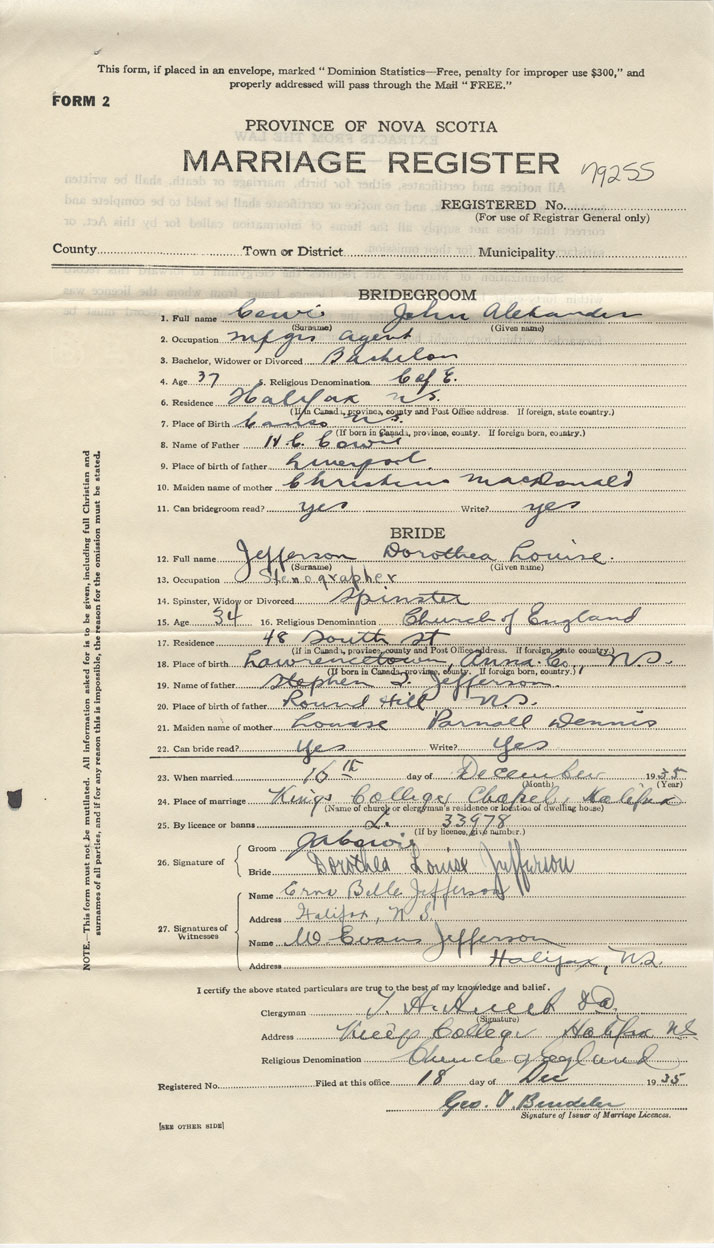 This form, if placed in an envelope, marked "Dominion Statistics—Free, penalty for improper use $300," and
properly addressed will pass through the Mail "FREE."
FORM 2
PROVINCE OF NOVA SCOTIA
MARRIAGE REGISTER 79255
REGISTERED No.
(For use of Registrar General only)
County Town or District Municipality
BRIDEGROOM
1. Full name Cowie John Alexander
(Surname) (Given name)
2. Occupation Mfgrs agent
3. Bachelor, Widower or Divorced Bachelor
4. Age 37 5. Religious Denomination C of E.
6. Residence Halifax N.S.
(If in Canada, province, county and Post Office address. If foreign, state country.)
7. Place of Birth Canso N.S.
(If born in Canada, province, county. If foreign born, country.)
8. Name of Father H. C. Cowie
9. Place of birth of father Liverpool
10. Maiden name of mother Christine MacDonald
11. Can bridegroom read? yes Write? yes
BRIDE
12. Full name Jefferson Dorothea Louise.
(Surname) (Given name)
13. Occupation Stenographer
14. Spinster, Widow or Divorced Spinster
15. Age 34 16. Religious Denomination Church of England
17. Residence 48 South St
(If in Canada, province, county and Post Office address. If foreign, state country.)
18. Place of birth Lawrencetown, Anna. Co., N.S.
(If born in Canada, province, county. If foreign born, country.)
19. Name of father Stephen L. Jefferson.
20. Place of birth of father Round Hill N.S.
21. Maiden name of mother Louise Parnall Dennis
22. Can bride read? Yes Write? Yes
23. When married 16th day of December 1935
(Month) (Year)
24. Place of marriage Kings College Chapel, Halifax
(Name of church or clergyman's residence or location of dwelling house)
25. By licence or banns L. 33978
(If by licence, give number.)
26. Signature of Groom JACowie
Bride Dorothea Louise Jefferson
27. Signatures of Witnesses Name Erna Belle Jefferson
Address Halifax, N.S.
Name W. Evans Jefferson
Address Halifax, N.S.
I certify the above stated particulars are true to the best of my knowledge and belief.
Clergyman
(Signature)
Address King's College Halifax NS
Religious Denomination Church of England
Registered No. Filed at this office 18 day of Dec 1935
Geo.
Signature of Issuer of Marriage Licences.
[SEE OTHER SIDE]
NOTE.—This form must not be mutilated. All information asked for is to be given, including full Christian and
surnames of all parties, and if for any reason this is impossible, the reason for the omission must be stated.